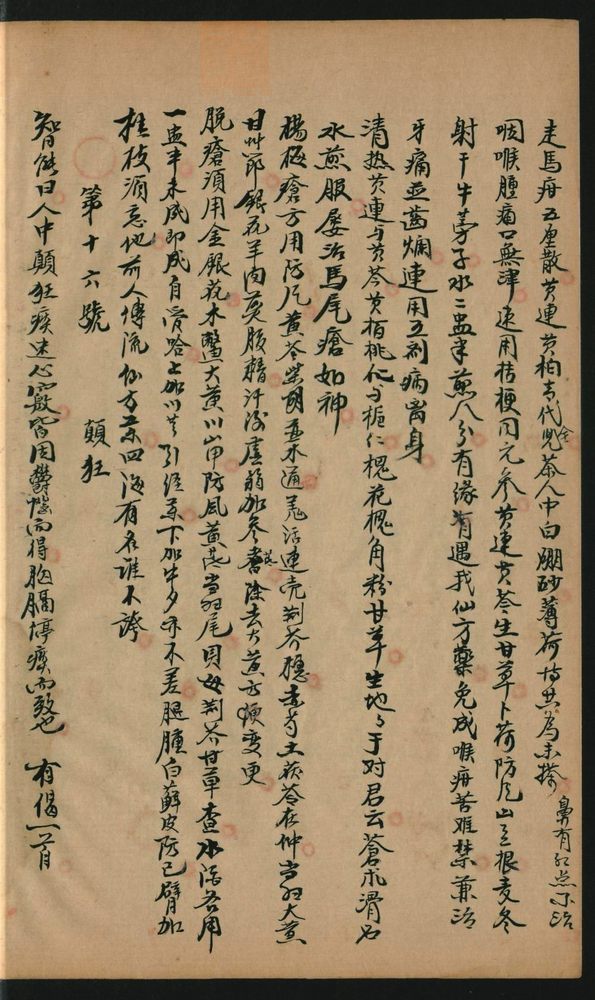 走馬疳五厘散黄連黄柏青代兒茶人中白硼砂薄荷片共為末搽 鼻有紅点不治
咽喉腫痛口無津速用桔梗同元參黄連黄芩生甘草卜荷防風山豆根麦冬
射干牛蒡子水二盅半煎八分有缘有遇我仙方藥免成喉疳苦难禁兼治
牙痛並齒爛連用五剂病离身
清热黄連与黄芩黄栢桃仁与栀仁槐花槐角粉甘草生地々于对君云蒼朮滑石
水煎服屡治馬尾瘡如神
楊梅瘡方用防风黄芩柴胡並木通羌活連壳荆芥穗土茯苓杜仲当归大黄
甘艸節銀花羊肉煎服精汗後虚弱加參耆除去大黄方便变更
脱瘡須用金銀花木鱉大黄川山甲防風黄芪当归尾貝母荆芥甘草查水酒各用
一盅半未成即成自受哈上加川芎引经药下加牛夕亦不差腿腫白蘚皮防己臂加
桂枝須忘他前人傳流仙方菜四海有名誰不誇
第十六號 顛狂
智能曰人中顛狂痰迷心竅皆因鬱惱而得胸膈停痰而致也 有偈一首